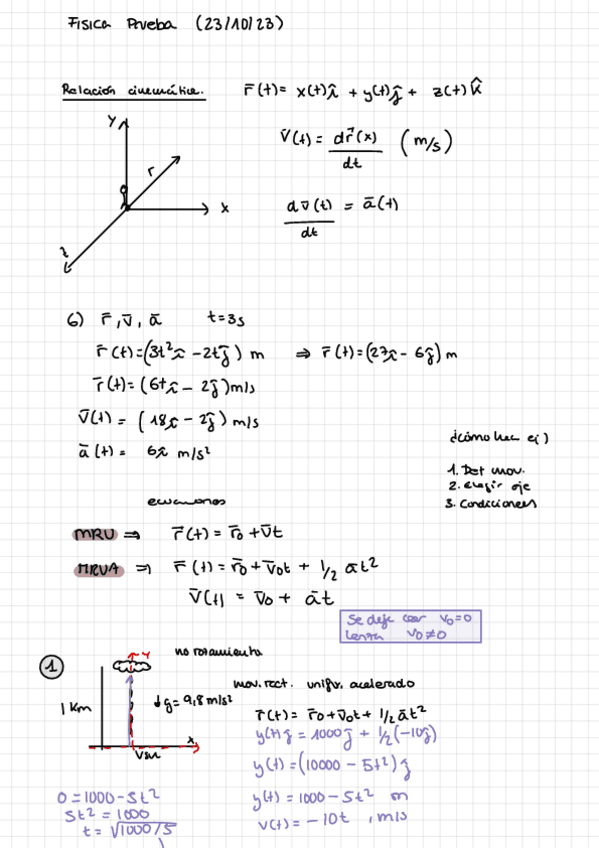 Fisica Prueba (23/10/23)
Relación cinemática. r̄(t)= x(t)î + y(t)ĵ + z(t)k̂
Y
r
x
z
v̄(t) = dr̄(x)/dt (m/s)
dv̄(t)/dt = ā(t)
6) r̄, v̄, ā t=3s
r̄(t)=(3t²î - 2tĵ) m ⇒ r̄(t)=(27î - 6ĵ) m
r̄(t)= (6tî - 2ĵ) m/s
v̄(t) = (18î - 2ĵ) m/s
ā(t) = 6î m/s²
¿cómo hac ej)
1. Det mov.
2. elegir eje
3. Condiciones
ecuaciones
MRU ⇒ r̄(t) = r̄0 + v̄t
MRUA ⇒ r̄(t) = r̄0 + v̄0t + 1/2 āt²
v̄(t) = v̄0 + āt
Se deja caer v0=0
Lanza v0≠0
1
Y
no rozamiento
1 Km
↓g=9,8m/s²
x
mov. rect. unifor. acelerado
r̄(t) = r̄0 + v̄0t + 1/2āt²
y(t)ĵ = 1000ĵ + 1/2(-10ĵ)
y(t) = (10000 - 5t²)ĵ
y(t) = 1000 - 5t² m
v(t) = -10t , m/s
0 = 1000 - 5t²
5t² = 1000
t = √1000/5